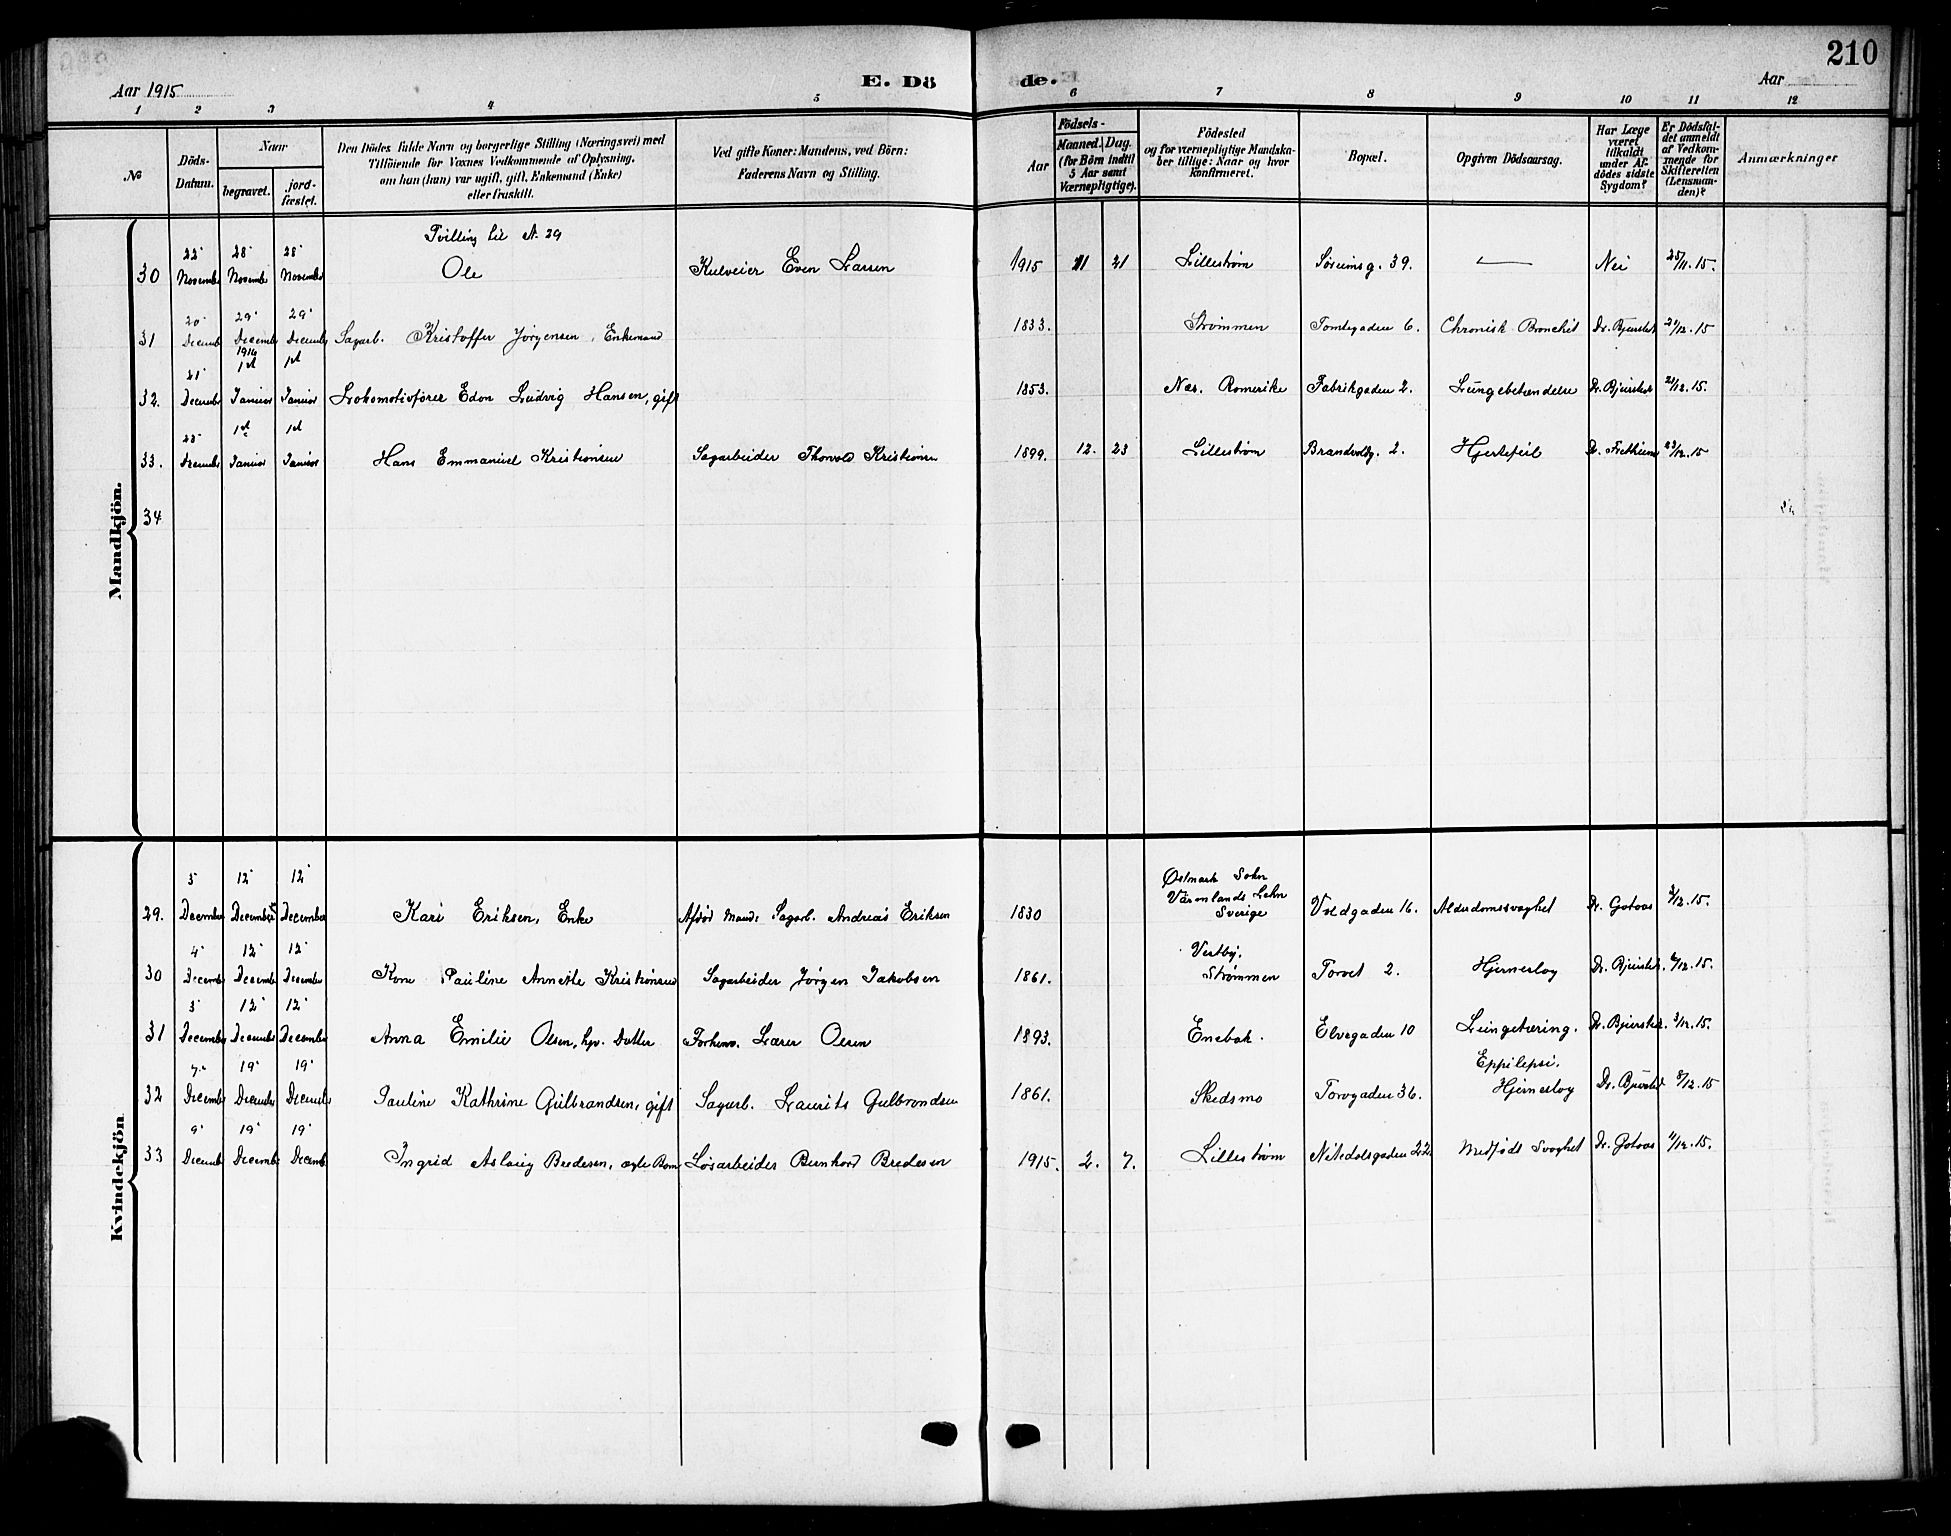 210
Aar 1915
E. Dö
de.
Aar
1 2 3 4 5 6 7 8 9 10 11 12
№
Döds-
Datum.
Naar
begravet.
jord-
fæstet.
Den Dödes fulde Navn og borgerlige Stilling (Næringsvei) med
Tilföiende for Voxnes Vedkommende af Oplysning,
om hun (han) var ugift, gift, Enkemand (Enke)
eller fraskilt.
Ved gifte Koner: Mandens, ved Börn:
Faderens Navn og Stilling.
Födsels-
Aar
Maaned. Dag.
(for Börn indtil
5 Aar samt
Værnepligtige).
Födested
og for værnepligtige Mandska-
ber tillige: Naar og hvor
konfirmeret.
Bopæl.
Opgiven Dödsaarsag.
Har Læge
været
tilkaldt
under Af-
dödes sidste
Sygdom?
Er Dödsfal-
det anmeldt
af Vedkom-
mende for
Skifteretten
(Lensman-
den)?
Anmærkninger
Mandkjön.
Tvilling til N. 29
30 22' November 28' November 28' November Ole Kulveier Even Larsen 1915 11 21 Lillestrøm Sørumsg. 39. — Nei 25/11.15.
31 20' Decemb 29' Decemb 29' Decemb Sagarb. Kristoffer Jørgensen, Enkemand 1833. Strømmen Tomtegaden 6. Chronisk Bronchit Dr. Bjerstedt 21/12.15
32. 21' Decemb 1916 1st Januar 1st Januar Lokomotivfører Edon Ludvig Hansen, gift 1853. Nes. Romerike Fabrikgaden 2. Lungebetændelse Dr. Bjerstedt 21/12.15.
33. 23' Decemb 1st Januar 1st Januar Hans Emmanuel Kristiansen Sagarbeider Thorvald Kristiansen 1899. 12. 23 Lillestrøm Brandvoldg. 2. Hjertefeil Dr. Frethiem 23/12.15
34
Kvindekjön
29. 3 December 12' December 12' December Kari Eriksen, Enke Afdød Mand: Sagarb. Andreas Eriksen 1830 Østmark Sokn Värmlands Lehn Sverige Voldgaden 16. Alderdomssvaghet Dr. Gotaas 3/12.15.
30 4' December 12' December 12' December Kone Pauline Annette Kristiansen Sagarbeider Jørgen Jakobsen 1861. Vestby. Strømmen Torvet 2. Hjerneslag Dr. Bjerstedt 6/12.15.
31 3' December 12' December 12' December Anna Emilie Olsen, hjv. Datter Forhenv. Lærer Olsen 1893. Enebak. Elvegaden 10 Lungetæring. Dr. Bjerstedt 3/12.15.
32 7' December 19' December 19' December Pauline Kathrine Gulbrandsen, gift Sagarb. Laurits Gulbrandsen 1861. Skedsmo Torvgaden 36. Eppilepsi. Hjerneslag Dr. Bjerstedt 8/12.15
33 9' Decemb 19' Decemb 19' Decemb Ingrid Aslaug Bredesen, ægte Barn Løsarbeider Bernhard Bredesen 1915. 2. 7. Lillestrøm Nitedalsgaden 22. Medfødt Svaghet Dr. Gotaas 11/12.15.